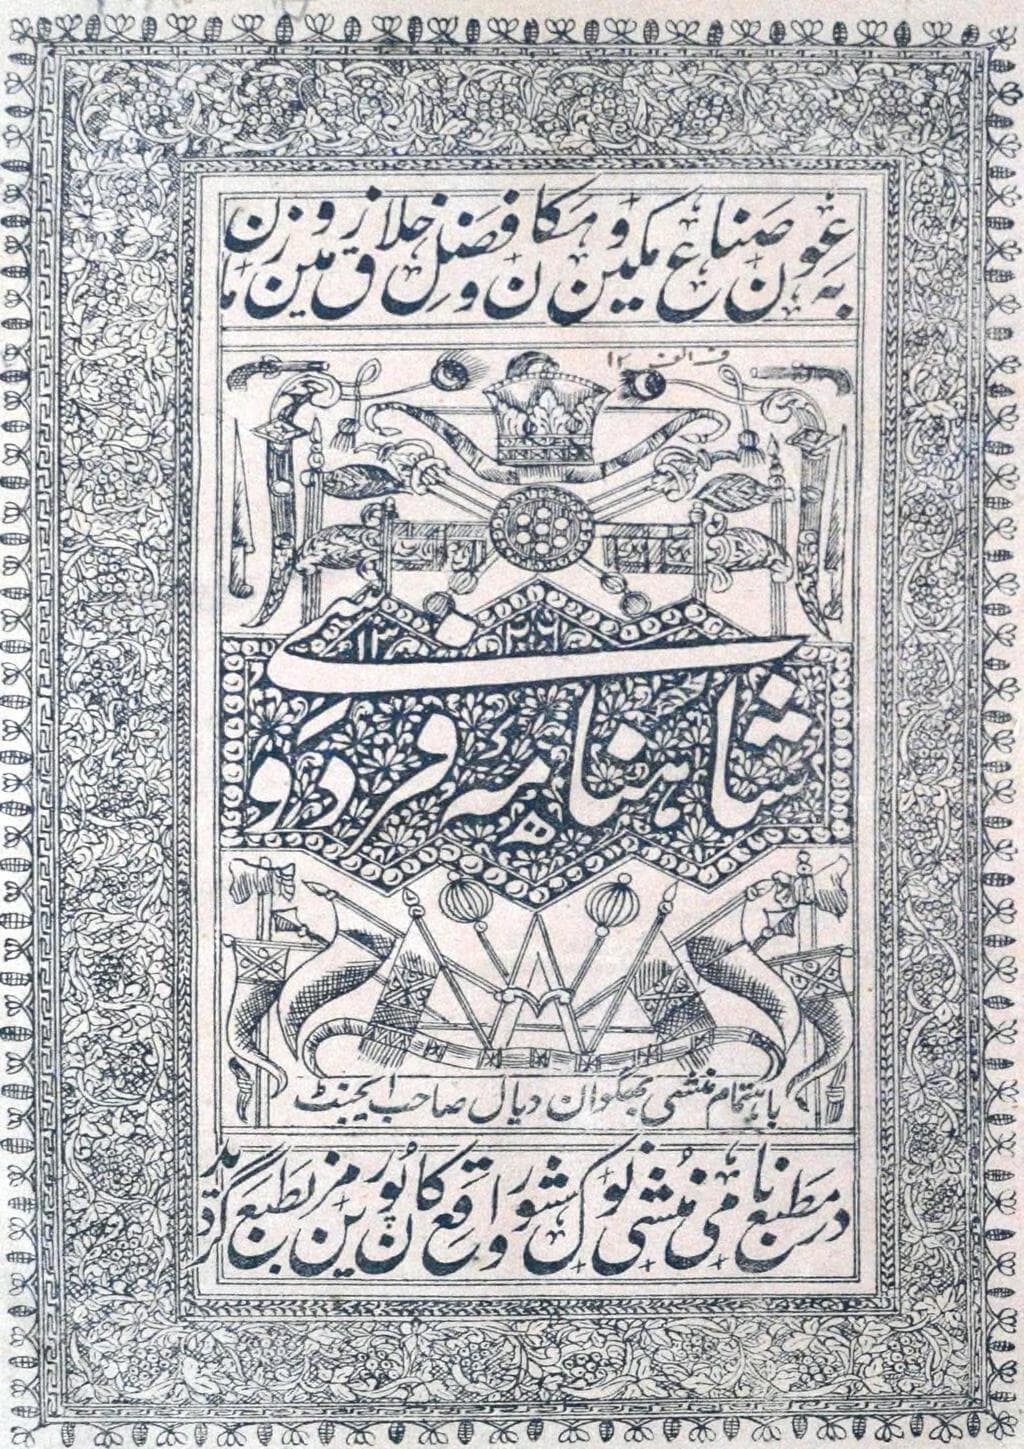 به عون صناع مکین و مکان و فضل خلاق زمین و زمن
۱۳۲۶
شاهنامه فردوسی
باهتمام منشی بھگوان دیال صاحب ایجنٹ
در مطبع نامی منشی نولکشور واقع کانپور مزین بطبع گردید